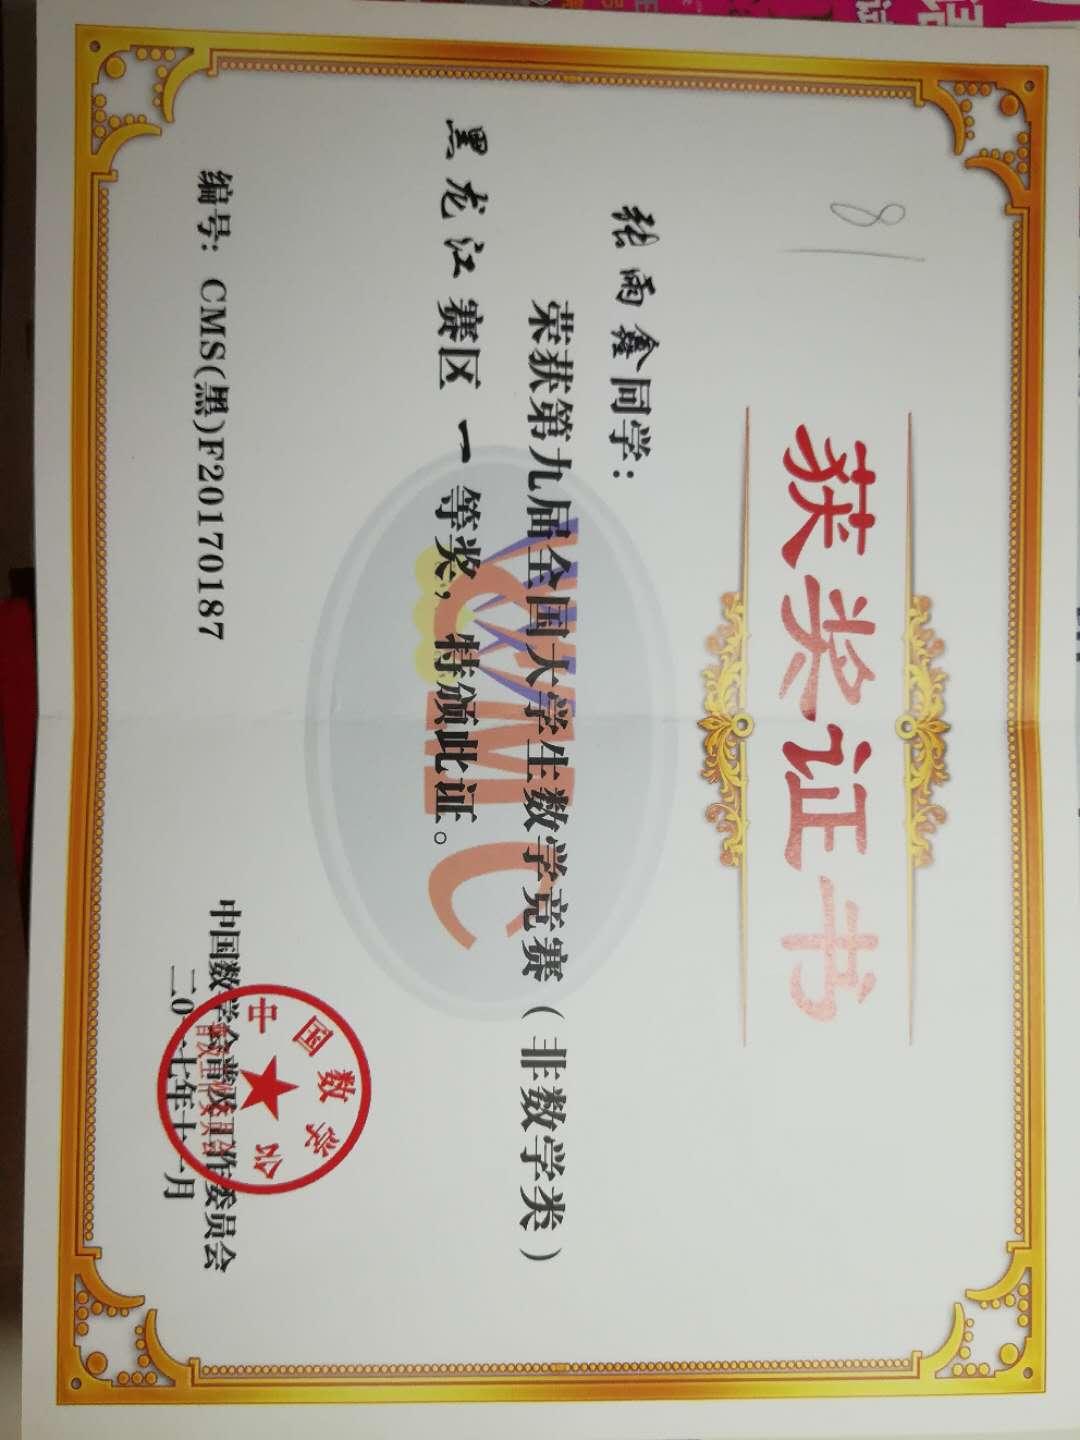 81
获奖证书
张雨鑫同学：
荣获第九届全国大学生数学竞赛（非数学类）
黑龙江赛区 一 等奖，特颁此证。
CMC
编号：CMS(黑)F20170187
中国数学会普及工作委员会
二0一七年十一月
中国数学会
普及工作委员会